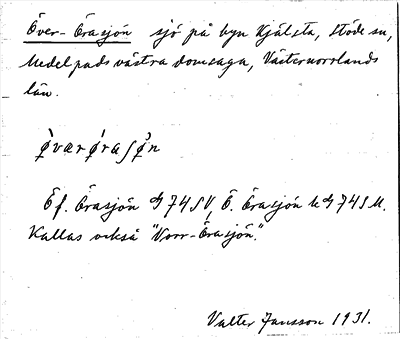 Över-Örasjön sjö på byn Kjälsta, Stöde sn,
Medelpads västra domsaga, Västernorrlands
län.
Öf. Örasjön 74SV, Ö. Örasjön 74SU.
Kallas också "Norr-Örasjön."
Valter Jansson 1931.